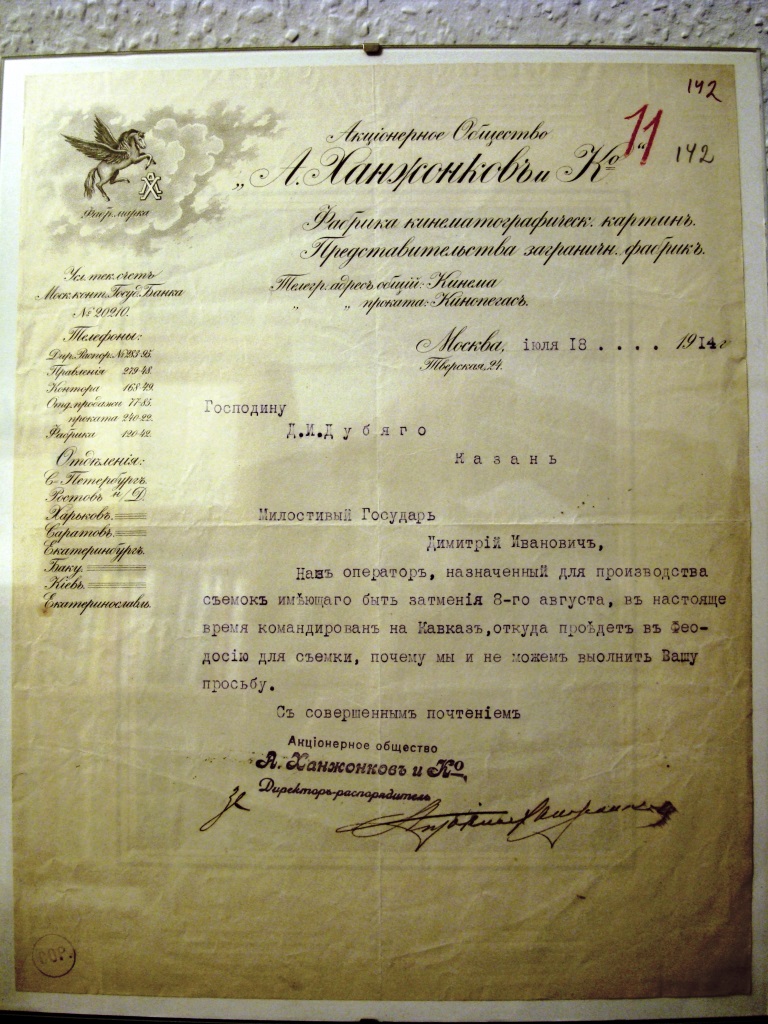 142
11
142
Акціонерное Общество
„А. Ханжонковъ и Ко“
Фабр. марка
Фабрика кинематографическ. картинъ.
Представительства заграничн. фабрикъ.
Телегр. адресъ общій: Кинема
„ „ проката: Кинопегасъ.
Усл. тек. счетъ
Моск. конт. Госуд. Банка
№ 20210.
Телефоны:
Дир. Распор. № 283-95.
Правленія 279-48.
Контора 168-49.
Отд. продажи 77-85.
проката 240-22.
Фабрика 120-42.
Отдѣленія:
С-Петербургъ.
Ростовъ н/Д.
Харьковъ.
Саратовъ.
Екатеринбургъ.
Баку.
Кіевъ.
Екатеринославль.
Москва, іюля 18 . . . . 1914 г
Тверская, 24.
Господину
Д.И.Дубяго
Казань
Милостивый Государь
Димитрій Ивановичъ,
Нашъ операторъ, назначенный для производства
съемокъ имѣющаго быть затменія 8-го августа, въ настояще
время командированъ на Кавказъ,откуда пройдетъ въ Фео-
досію для съемки, почему мы и не можемъ выолнить Вашу
просьбу.
Съ совершеннымъ почтеніемъ
Акціонерное общество
А. Ханжонковъ и Ко
Директоръ-распорядитель